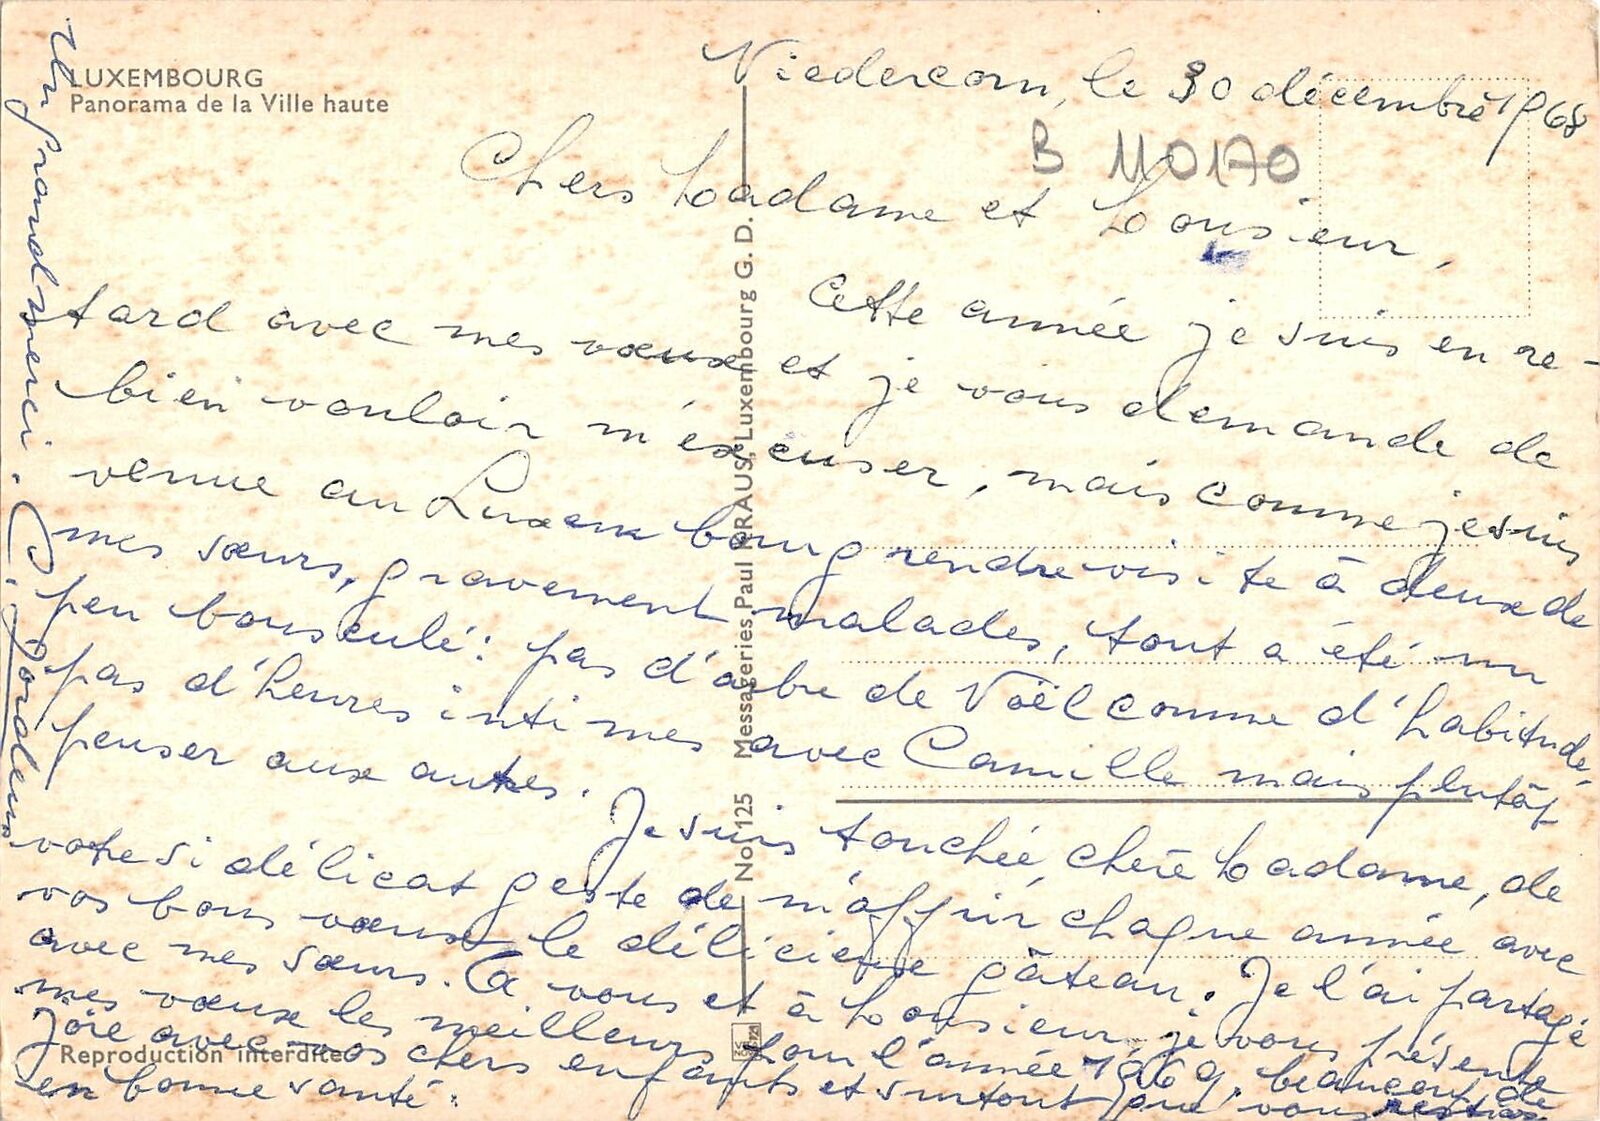 LUXEMBOURG
Panorama de la Ville haute
Niedercorn, le 30 décembre 1968
B 110170
Chers Madame et Monsieur,
Cette année je suis en re-
tard avec mes vœux et je vous demande de
bien vouloir m'excuser, mais comme je suis
venue au Luxembourg rendre visite à deux de
mes sœurs, gravement malades, tout a été un
peu bousculé: pas d'arbre de Noël comme d'habitude,
pas d'heures intimes avec Camille mais plutôt
penser aux autres.
Je suis touchée, chère Madame, de
votre si délicat geste de m'offrir chaque année avec
vos bons vœux le délicieux gâteau. Je l'ai partagé
avec mes sœurs. A vous et à Monsieur je vous présente
mes vœux les meilleurs pour l'année 1969, beaucoup de
joie avec vos chers enfants et surtout que vous restiez
en bonne santé.
Un grand merci. C. Jordeus
Messageries Paul KRAUS, Luxembourg G. D.
No. 125
Reproduction interdite